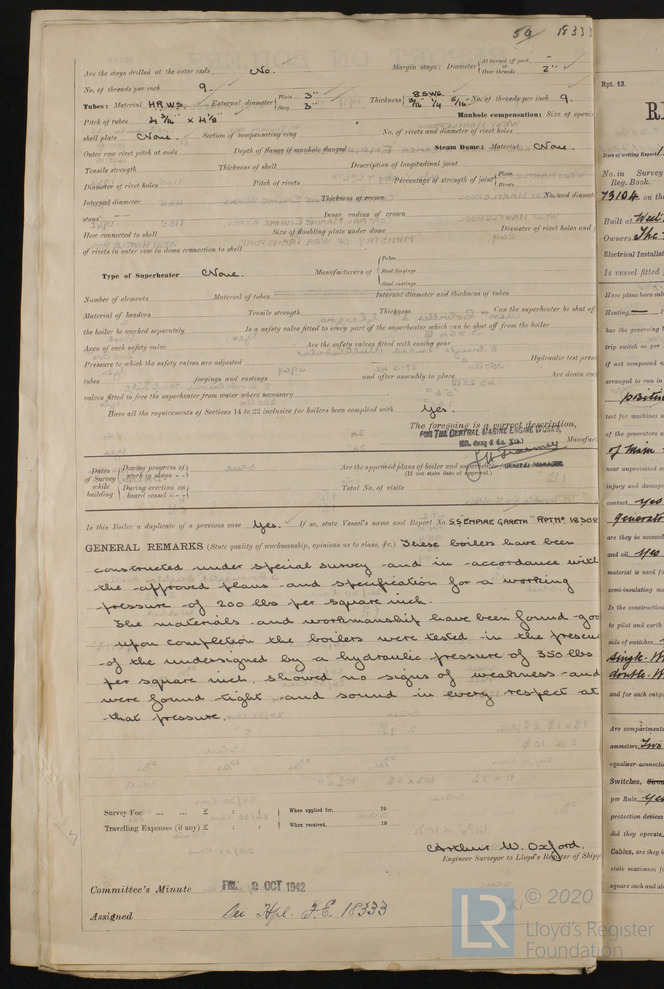 5a 18333
Are the stays drilled at the outer ends No. Margin stays: Diameter { At turned off part, or Over threads 2"
No. of threads per inch 9.
Tubes: Material H.R.W.S. External diameter { Plain 3" Stay 3" Thickness { 8 SWG. 3/16 1/4 5/16 No. of threads per inch 9.
Pitch of tubes 4 3/16" x 4 1/8" Manhole compensation: Size of openi
shell plate None. Section of compensating ring No. of rivets and diameter of rivet holes
Outer row rivet pitch at ends Depth of flange if manhole flanged Steam Dome: Material None.
Tensile strength Thickness of shell Description of longitudinal joint
Diameter of rivet holes Pitch of rivets Percentage of strength of joint { Plate Rivets
Internal diameter Thickness of crown No. and diamet
stays Inner radius of crown
How connected to shell Size of doubling plate under dome Diameter of rivet holes and
of rivets in outer row in dome connection to shell
Type of Superheater None. Manufacturers of { Tubes Steel forgings Steel castings
Number of elements Material of tubes Internal diameter and thickness of tubes
Material of headers Tensile strength Thickness Can the superheater be shut of
the boiler be worked separately Is a safety valve fitted to every part of the superheater which can be shut off from the boiler
Area of each safety valve Are the safety valves fitted with easing gear
Pressure to which the safety valves are adjusted Hydraulic test press
tubes forgings and castings and after assembly in place Are drain co
valves fitted to free the superheater from water where necessary
Have all the requirements of Sections 14 to 22 inclusive for boilers been complied with Yes.
The foregoing is a correct description,
FOR THE CENTRAL MARINE ENGINE WORKS,
Manufac
GENERAL MANAGER
Dates of Survey while building { During progress of work in shops - - During erection on board vessel - - Are the approved plans of boiler and superheater
(If not state date of approval.)
Total No. of visits
Is this Boiler a duplicate of a previous case Yes. If so, state Vessel's name and Report No. S.S. EMPIRE GARETH" RPT No 18308
GENERAL REMARKS (State quality of workmanship, opinions as to class, &c.) These boilers have been
constructed under special survey and in accordance with
the approved plans and specification for a working
pressure of 200 lbs per square inch.
The materials and workmanship have been found goo
upon completion the boilers were tested in the presenc
of the undersigned by a hydraulic pressure of 350 lbs
per square inch, showed no signs of weakness and
were found tight and sound in every respect at
that pressure.
Survey Fee ... ... £ : : When applied for, 19
Travelling Expenses (if any) £ : : When received, 19
Arthur W. Oxford.
Engineer Surveyor to Lloyd's Register of Shipp
Committee's Minute FRI. 2 OCT 1942
Assigned See Hpl. F.E. 18333
Rpt. 13.
R
Date of writing Report
No. in Survey
Reg. Book.
73104 on the
Built at West
Owners The
Electrical Installat
Is vessel fitted
Have plans been sub
Heating
has the governing
trip switch as per
if not compound
arranged to run in
positio
test for machines
of the generators a
of main
near unprotected
injury and damag
contact yes
generat
are they in accord
and oil yes
material is used fo
semi-insulating ma
Is the construction
to pilot and earth
side of switches
single-
double-
and for each outgo
Are compartments
ammeters Two
equaliser connectio
Switches,
per Rule yes
protection devices
did they operate,
Cables, are they i
state maximum f
square inch and al
LR © 2020
Lloyd's Register
Foundation